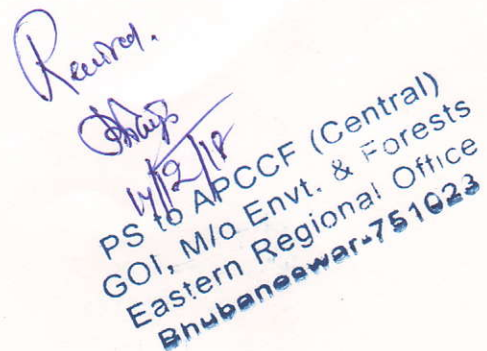 Received.
14/12/18
PS to APCCF (Central)
GOI, M/o Envt. & Forests
Eastern Regional Office
Bhubaneswar-751023